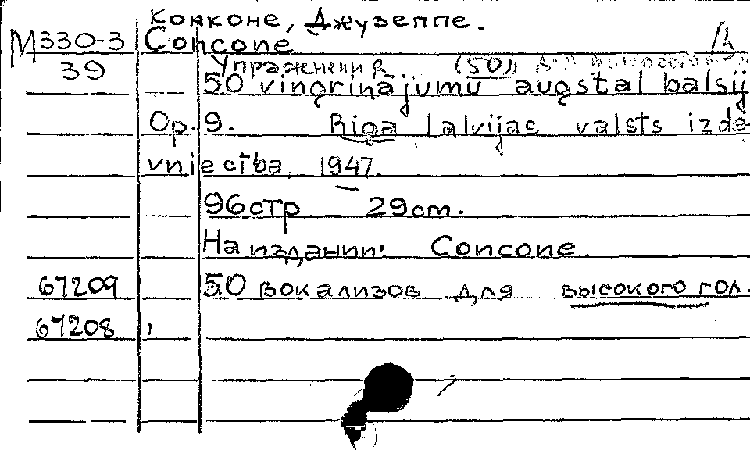 Конконе, Джузеппе.
М330-3 Concone
39 Упражнения... (50)
50 vingrinājumu augstai balsij
Op. 9. Rīgā Latvijas valsts izde-
vniecība, 1947.
96стр 29cm.
На издании: Concone
67209 50 вокализов для высокого гол.
67208